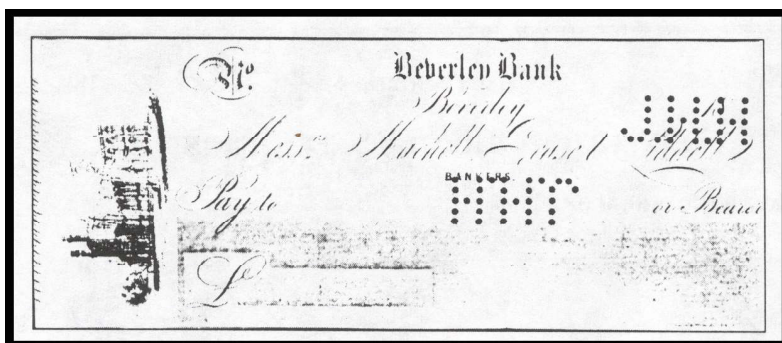 No.
Beverley Bank
Beverley 18
Messrs. Machell, Pease &
BANKERS.
Pay to or Bearer
£